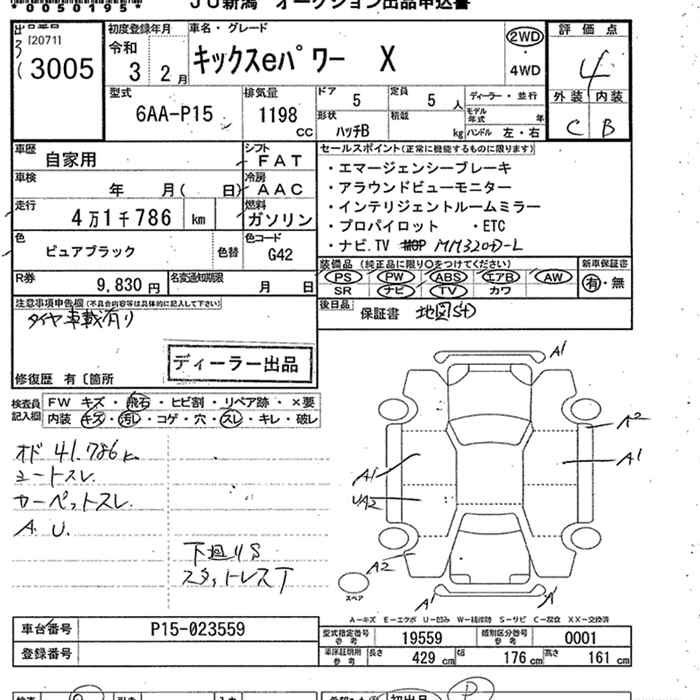 *0050195*
JU新潟 オークション出品申込書
[20711]
3005
初度登録年月
令和
3 2月
車名・グレード
キックスeパワー X
2WD
4WD
評価点
4
外装 内装
C B
型式
6AA-P15
排気量
1198
cc
ドア
5
定員
5人
形状
ハッチB
積載
kg
ディーラー・並行
モデル年式 年
ハンドル 左・右
車歴
自家用
シフト
FAT
車検
年 月( 日)
冷房
AAC
走行
4万1千786 km
燃料
ガソリン
色
ピュアブラック
色替
色コード
G42
R券
9,830円
名変通知期限
月 日
セールスポイント(正常に機能するものに限ります)
・エマージェンシーブレーキ
・アラウンドビューモニター
・インテリジェントルームミラー
・プロパイロット ・ETC
・ナビ.TV MM320D-L
装備品(純正品に限り○をつけてください)
PS PW ABS エアB AW
SR ナビ TV カワ
新車保証書
有・無
後日品
保証書 地図SD
注意事項申告欄(不具合内容等は具体的に記入して下さい)
タイヤ車載有り
ディーラー出品
修復歴 有〔箇所
検査員記入欄
FW キズ・飛石・ヒビ割・リペア跡・×要
内装 キズ・汚レ・コゲ・穴・スレ・キレ・破レ
オド 41.786k
シートスレ
カーペットスレ
A. U.
下廻りS
スタットレスT
A1
A2
A1
A1
UA2
A2
A1
A1
スペア
A－キズ E－エクボ U－凹み W－補修跡 S－サビ C－腐食 XX－交換済
車台番号
P15-023559
登録番号
型式指定番号 参考
19559
類別区分番号 参考
0001
車庫証明用 参考
長さ 429cm
幅 176cm
高さ 161cm